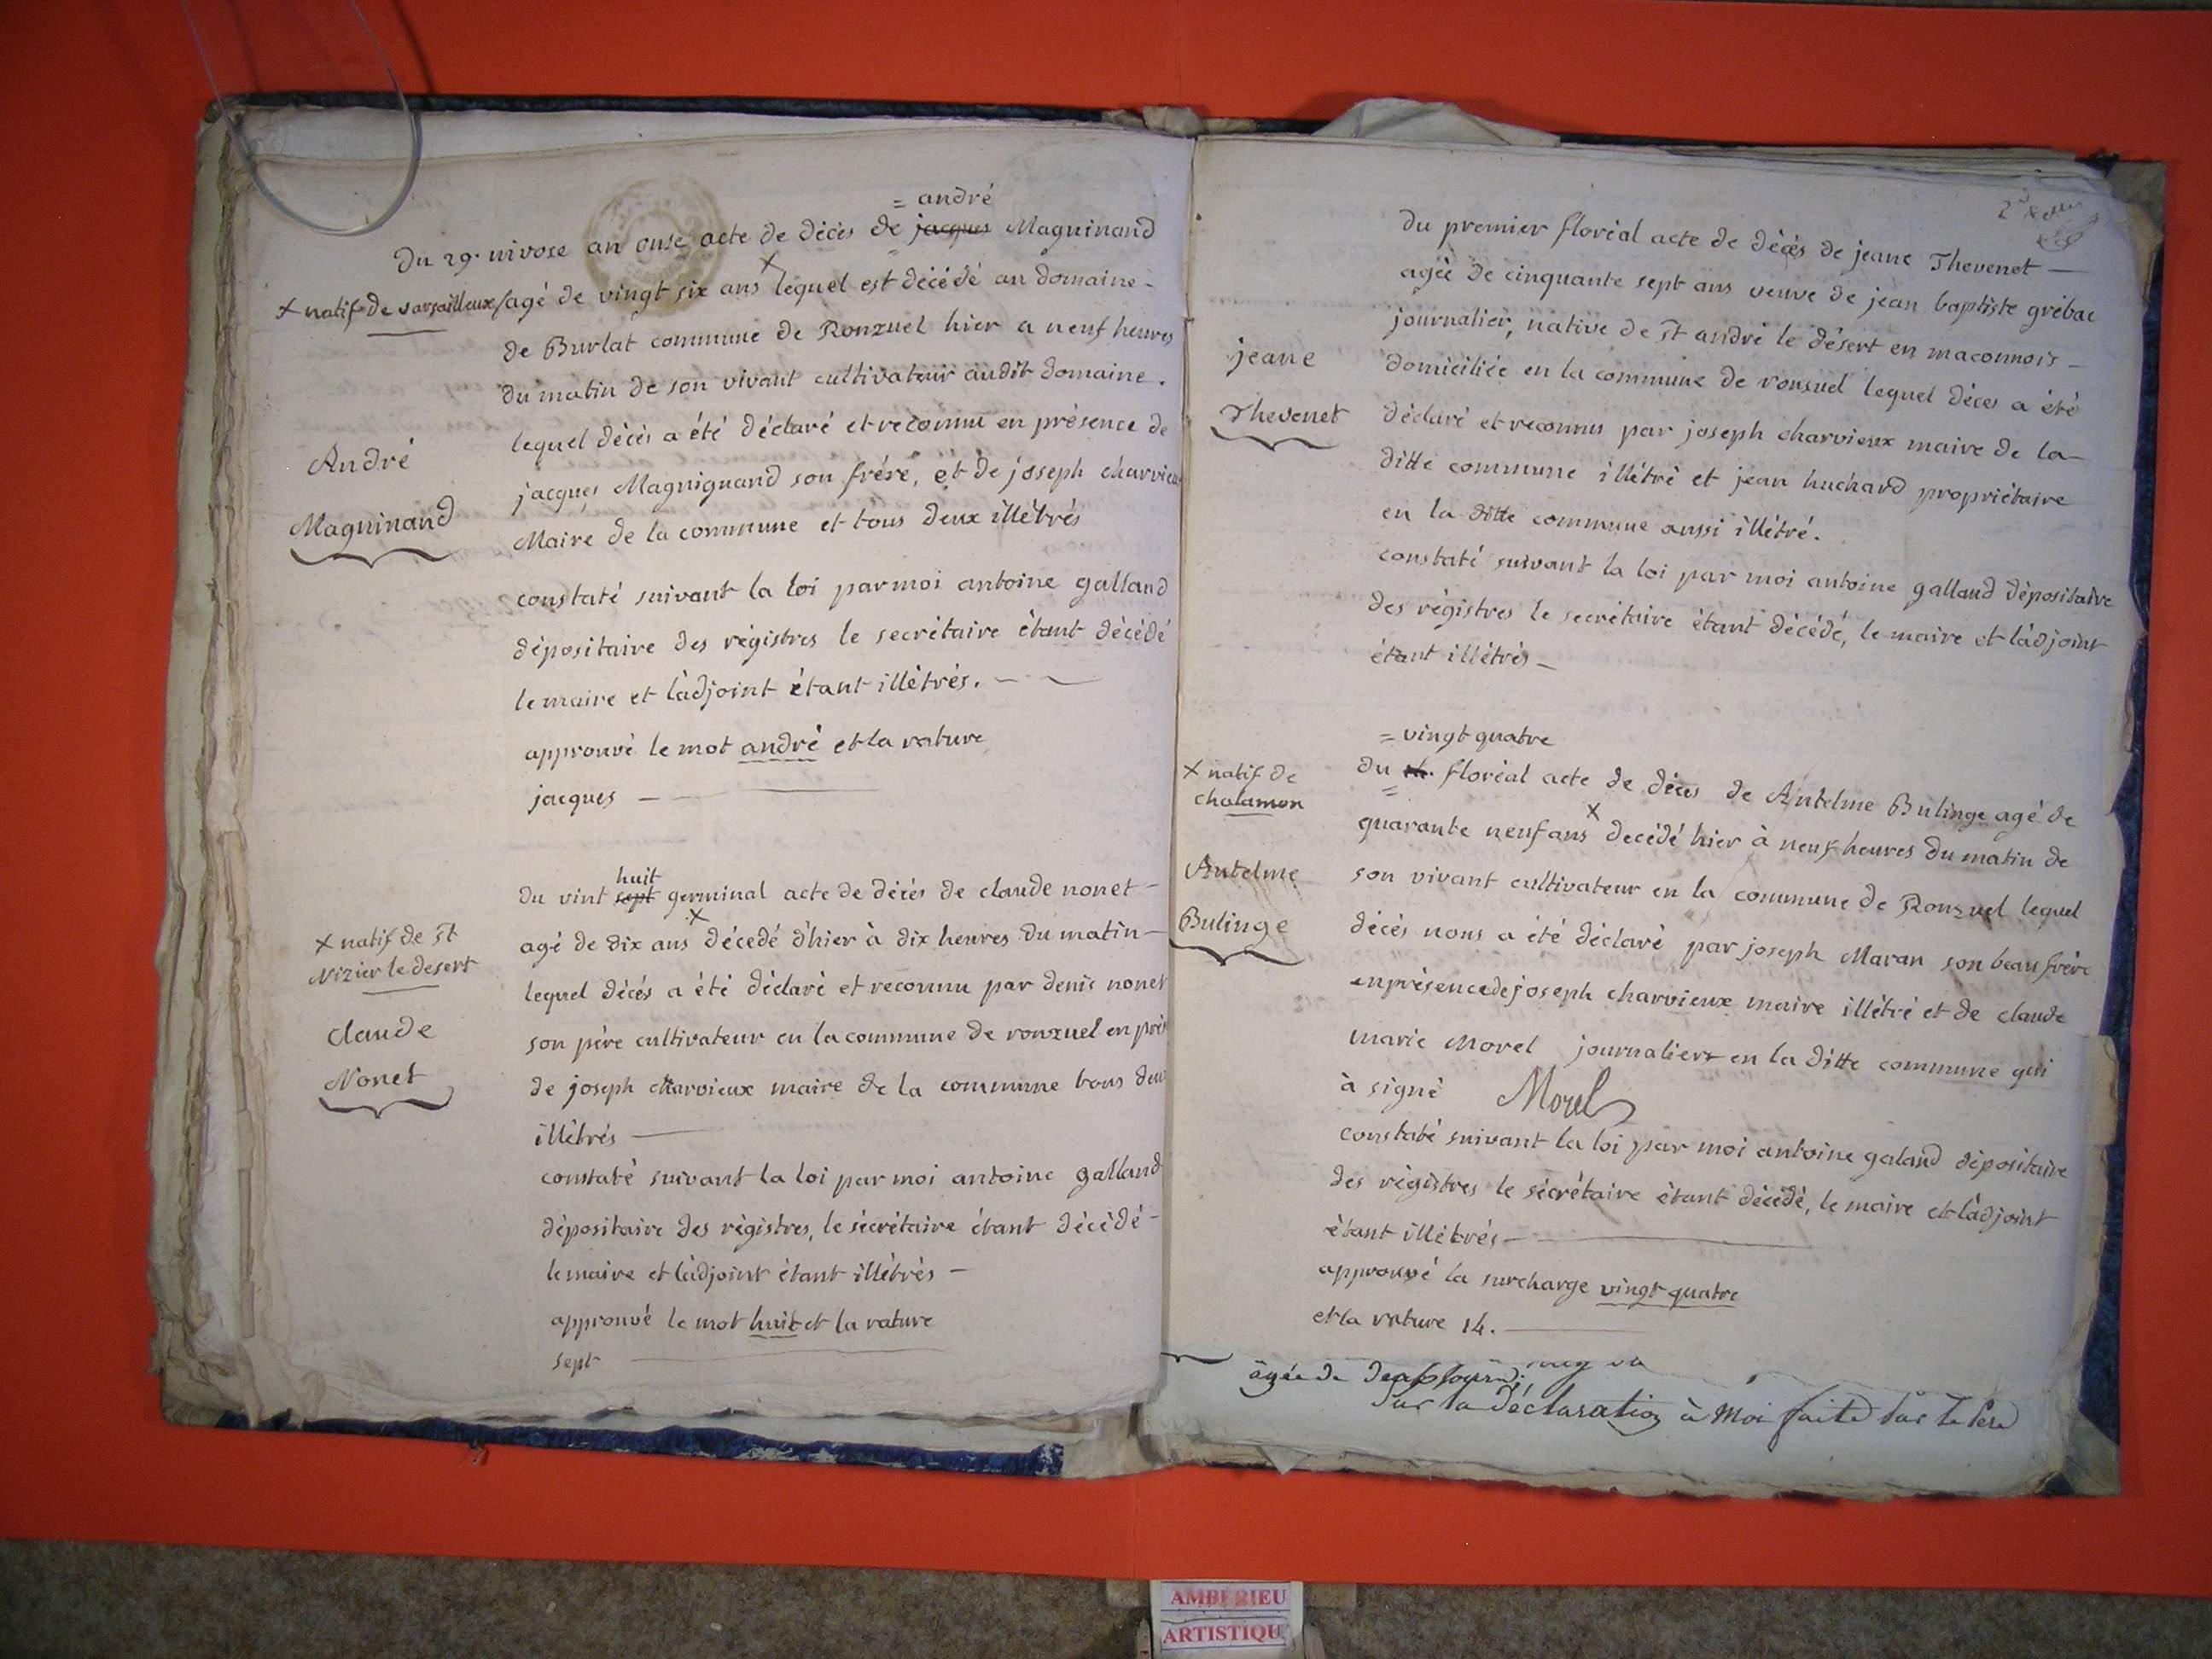 = andré
Du 29. nivose an onse acte de décès de jacques Magninand
x natif de varsailleux / agé de vingt six ans x lequel est décédé au domaine -
de Burlat commune de Ronzuel hier a neuf heures
du matin de son vivant cultivateur audit domaine.
lequel décès a été déclaré et reconnu en présence de
jacques Magnignand son frére, et de joseph charvieu
Maire de la commune et tous deux illétrés
André
Magninand
constaté suivant la loi par moi antoine galland
dépositaire des régistres le secrétaire étant décédé
le maire et l'adjoint étant illétrés.
approuvé le mot andré et la rature
jacques
huit
Du vint sept germinal acte de décés de claude nonet -
agé de dix ans x décedé d'hier à dix heures du matin -
lequel décés a été déclaré et reconnu par denis nonet
son père cultivateur en la commune de ronzuel en prés
de joseph charvieux maire de la commune tous deux
illétrés
x natif de St
Nizier le desert
claude
Nonet
constaté suivant la loi par moi antoine galland
dépositaire des régistres, le sécrétaire étant décédé -
le maire et l'adjoint étant illétrés -
approuvé le mot huit et la rature
sept
Du premier floréal acte de décès de jeane Thevenet
agée de cinquante sept ans veuve de jean baptiste grébac
journalier, native de St andré le désert en maconnois -
domiciliée en la commune de ronzuel lequel déces a été
déclaré et reconnus par joseph charvieux maire de la
ditte commune illétré et jean huchard propriétaire
en la ditte commune aussi illétré.
jeane
Thevenet
constaté suivant la loi par moi antoine galland dépositaire
des régistres le secrétaire étant décédé, le maire et l'adjoint
étant illétrés -
= vingt quatre
du 14. floréal acte de déces de Antelme Bulinge agé de
quarante neuf ans x decédé hier à neuf heures du matin de
son vivant cultivateur en la commune de Ronzuel lequel
décés nous a été déclaré par joseph Maran son beau frére
en présence de joseph charvieux maire illétré et de claude
marie Morel journalier en la ditte commune qui
à signé Morel
x natif de
chalamon
Antelme
Bulinge
constaté suivant la loi par moi antoine galand dépositaire
des régistres le sécrétaire étant décédé, le maire et l'adjoint
étant illétrés -
approuvé la surcharge vingt quatre
et la rature 14.
âgée de
Sur la Déclaration à Moi faite par le Pere
AMBERIEU
ARTISTIQU